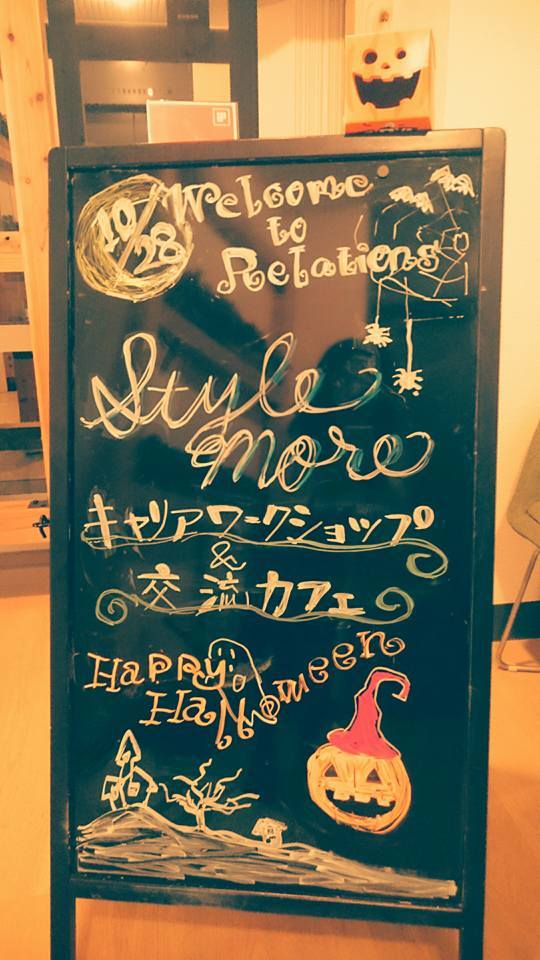 10/28
Welcome
to
Relations
Style
more
キャリアワークショップ
&
交流カフェ
Happy
Halloween